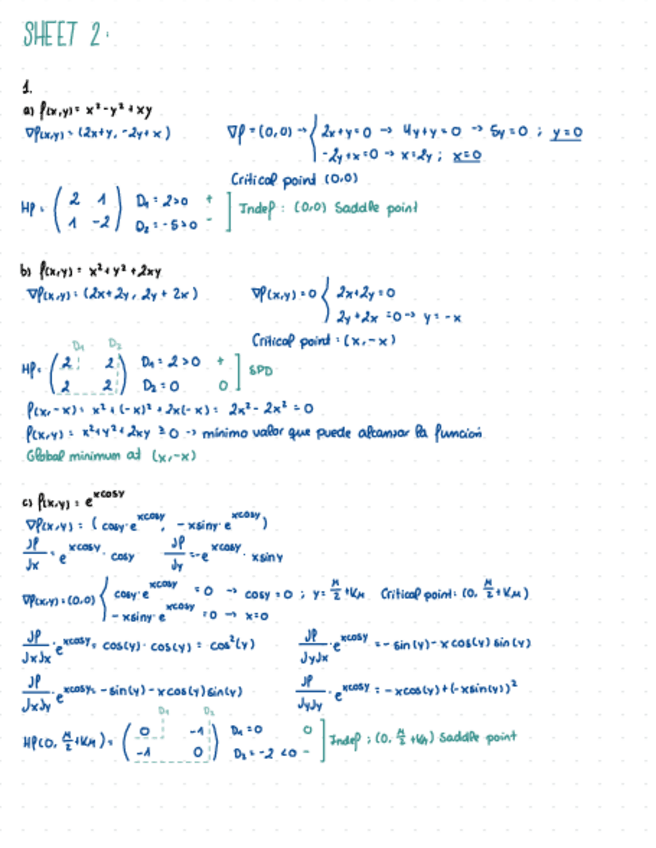 SHEET 2:
1.
a) f(x,y) = x² - y² + xy
∇f(x,y) = (2x+y, -2y+x) ∇f = (0,0) → { 2x+y=0 → 4y+y=0 → 5y=0 ; y=0
-2y+x=0 → x=2y ; x=0
Critical point (0,0)
Hf = ( 2 1 D₁ = 2>0 +
1 -2 ) D₂ = -5>0 - ] Indef : (0,0) Saddle point
b) f(x,y) = x² + y² + 2xy
∇f(x,y) = (2x+2y, 2y+2x) ∇f(x,y)=0 { 2x+2y=0
2y+2x=0 → y=-x
Critical point : (x,-x)
D₁ D₂
Hf = ( 2 2 D₁ = 2>0 +
2 2 ) D₂ = 0 0 ] SPD
f(x,-x) = x² + (-x)² + 2x(-x) = 2x² - 2x² = 0
f(x,y) = x² + y² + 2xy ≥ 0 → mínimo valor que puede alcanzar la función
Global minimum at (x,-x)
c) f(x,y) = e^xcosy
∇f(x,y) = (cosy·e^xcosy, -xsiny·e^xcosy)
Jf/Jx = e^xcosy · cosy Jf/Jy = -e^xcosy · xsiny
∇f(x,y)=(0,0) { cosy·e^xcosy = 0 → cosy=0 ; y= π/2 + Kπ Critical point: (0, π/2 + Kπ)
-xsiny·e^xcosy = 0 → x=0
Jf/JxJx · e^xcosy = cos(y)·cos(y) = cos²(y) Jf/JyJx · e^xcosy = -sin(y) - xcos(y)sin(y)
Jf/JxJy · e^xcosy = -sin(y) - xcos(y)sin(y) Jf/JyJy · e^xcosy = -xcos(y) + (-xsin(y))²
D₁ D₂
Hf(0, π/2 + Kπ) = ( 0 -1 D₁ = 0 0
-1 0 ) D₂ = -2 <0 - ] Indef ; (0, π/2 + Kπ) Saddle point